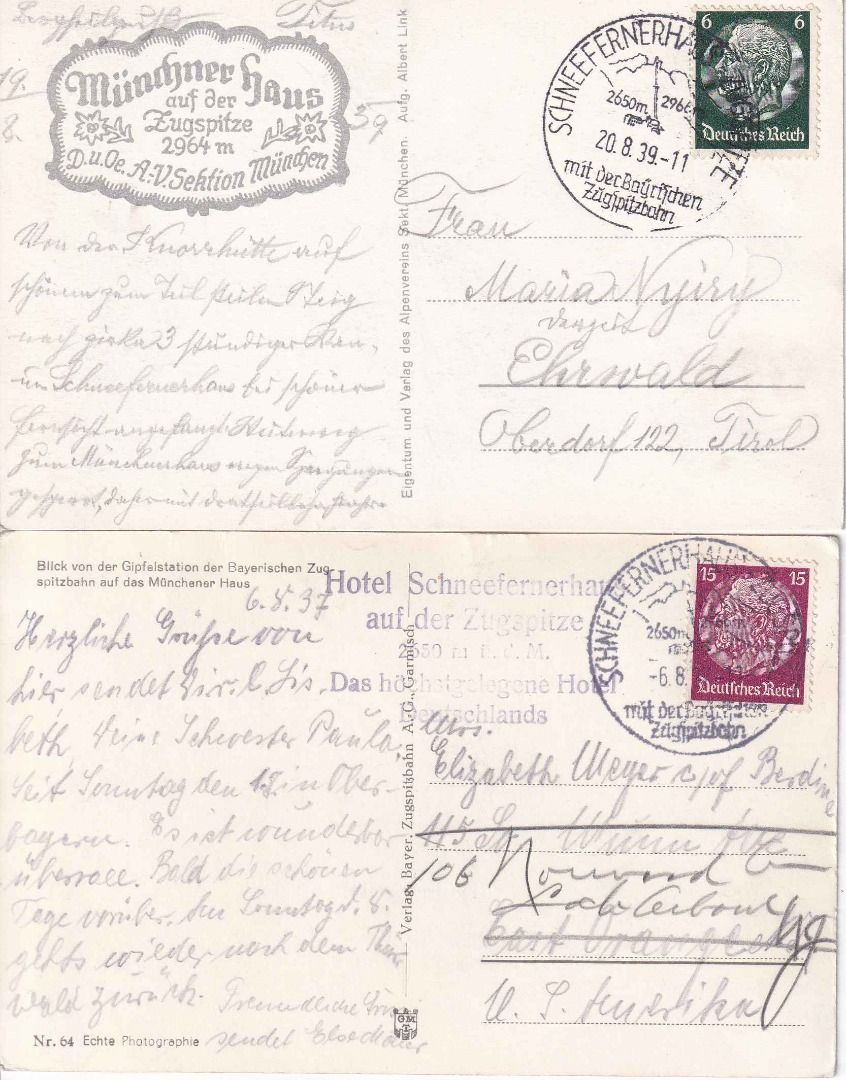 Münchner Haus
auf der
Zugspitze
2964 m
D. u. Oe. A.-V. Sektion München
19.
8.
39
Von der Knorrhütte auf
schönem zum Teil steilen Steig
nach zirka 3 stündiger
Schneefernerhaus bei schöner
Fernsicht angelangt.
zum Münchnerhaus wegen Sprengungen
gesperrt, daher mit
Eigentum und Verlag des Alpenvereins Sekt. München. Aufg. Albert Link
SCHNEEFERNERHAUS ZUGSPITZE
2650m. 2966m
20.8.39.-11
mit der Bayrischen
Zugspitzbahn
6 6
Deutsches Reich
Frau
Maria Nyiry
derzeit
Ehrwald
Oberdorf 122, Tirol
Blick von der Gipfelstation der Bayerischen Zug-
spitzbahn auf das Münchener Haus
6. 8. 37
Herzliche Grüße von
hier sendet Dir, l. Lis-
beth, Deine Schwester Paula.
Seit Sonntag den 1.8. in Ober-
bayern. Es ist wunderbar
überall. Bald die schönen
Tage vorüber. Am Sonntag d. 8.
gehts wieder nach dem Thür
wald zurück.
Freundliche
sendet
Nr. 64 Echte Photographie
Verlag: Bayer. Zugspitzbahn A.G., Garmisch
GMT
Hotel Schneefernerhaus
auf der Zugspitze
2650 m ü. d. M.
Das höchstgelegene Hotel
Deutschlands
SCHNEEFERNERHAUS
2650m 2966m
-6.8.
mit der Bayrischen
Zugspitzbahn
15 15
Deutsches Reich
Mrs.
Elizabeth Meyer c/of Berdine
115 So. Munn Ave
106 Norwood
East Orange
NJ
U. S. Amerika